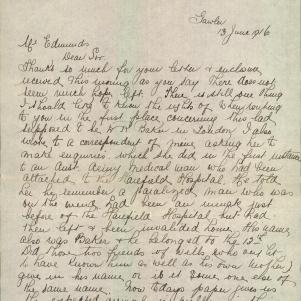 Gawler
13 June 1916
Mr Edmunds
Dear Sir
Thanks so much for your letter & enclosure
received this morning as you say there does not
seem much hope left. There is still one thing
I should like to know the rights of. When writing
to you in the first place concerning this lad
supposed to be Baker in London I also
wrote to a correspondent of mine asking her to
make enquiries which she did in the first instance
to an Aust Army Medical man who had been
attached to the Harefield Hospital. He told
her he remembered a paralized man who was
had been an inmate just
before of the Harefield Hospital but had
then left & been invalided home. His name
also was Baker & he belonged to the 12th
Did those two friends of Wills who
to have known him as well as his own
give in his name or is it some one else of
the same name. Now Edays paper gives us